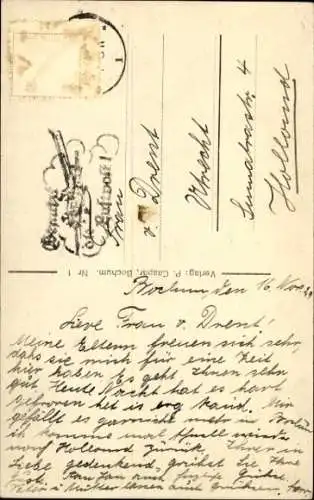 Benutzt
die
Luftpost!
Frau
v. Drent
Utrecht
Sumatrastr. 4
Holland
Verlag: P. Caspar, Bochum. Nr 1
Bochum, den 16. Nov.
Lieve Frau v. Drent!
Meine Eltern freuen sich sehr
dass sie mich für eine Zeit
hier haben Es geht Ihnen sehr
gut Heute Nacht hat es hart
gefroren het is erg koud. Mir
gefällt es garnicht mehr in
ich komme mal
nach Holland zurück Ihrer in
Liebe gedenkend, grüsst die Ihre
Vater u Mutter lassen auch grüssen